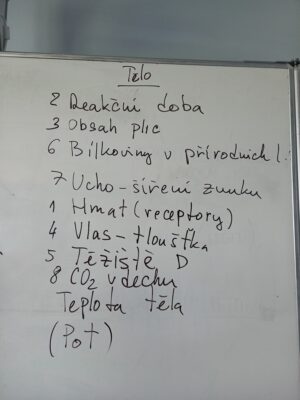 Tělo
2 Reakční doba
3 Obsah plic
6 Bílkoviny v přírodních l.
7 Ucho - šíření zvuku
1 Hmat (receptory)
4 Vlas - tloušťka
5 Těžiště D
8 CO2 v dechu
Teplota těla
(Pot)